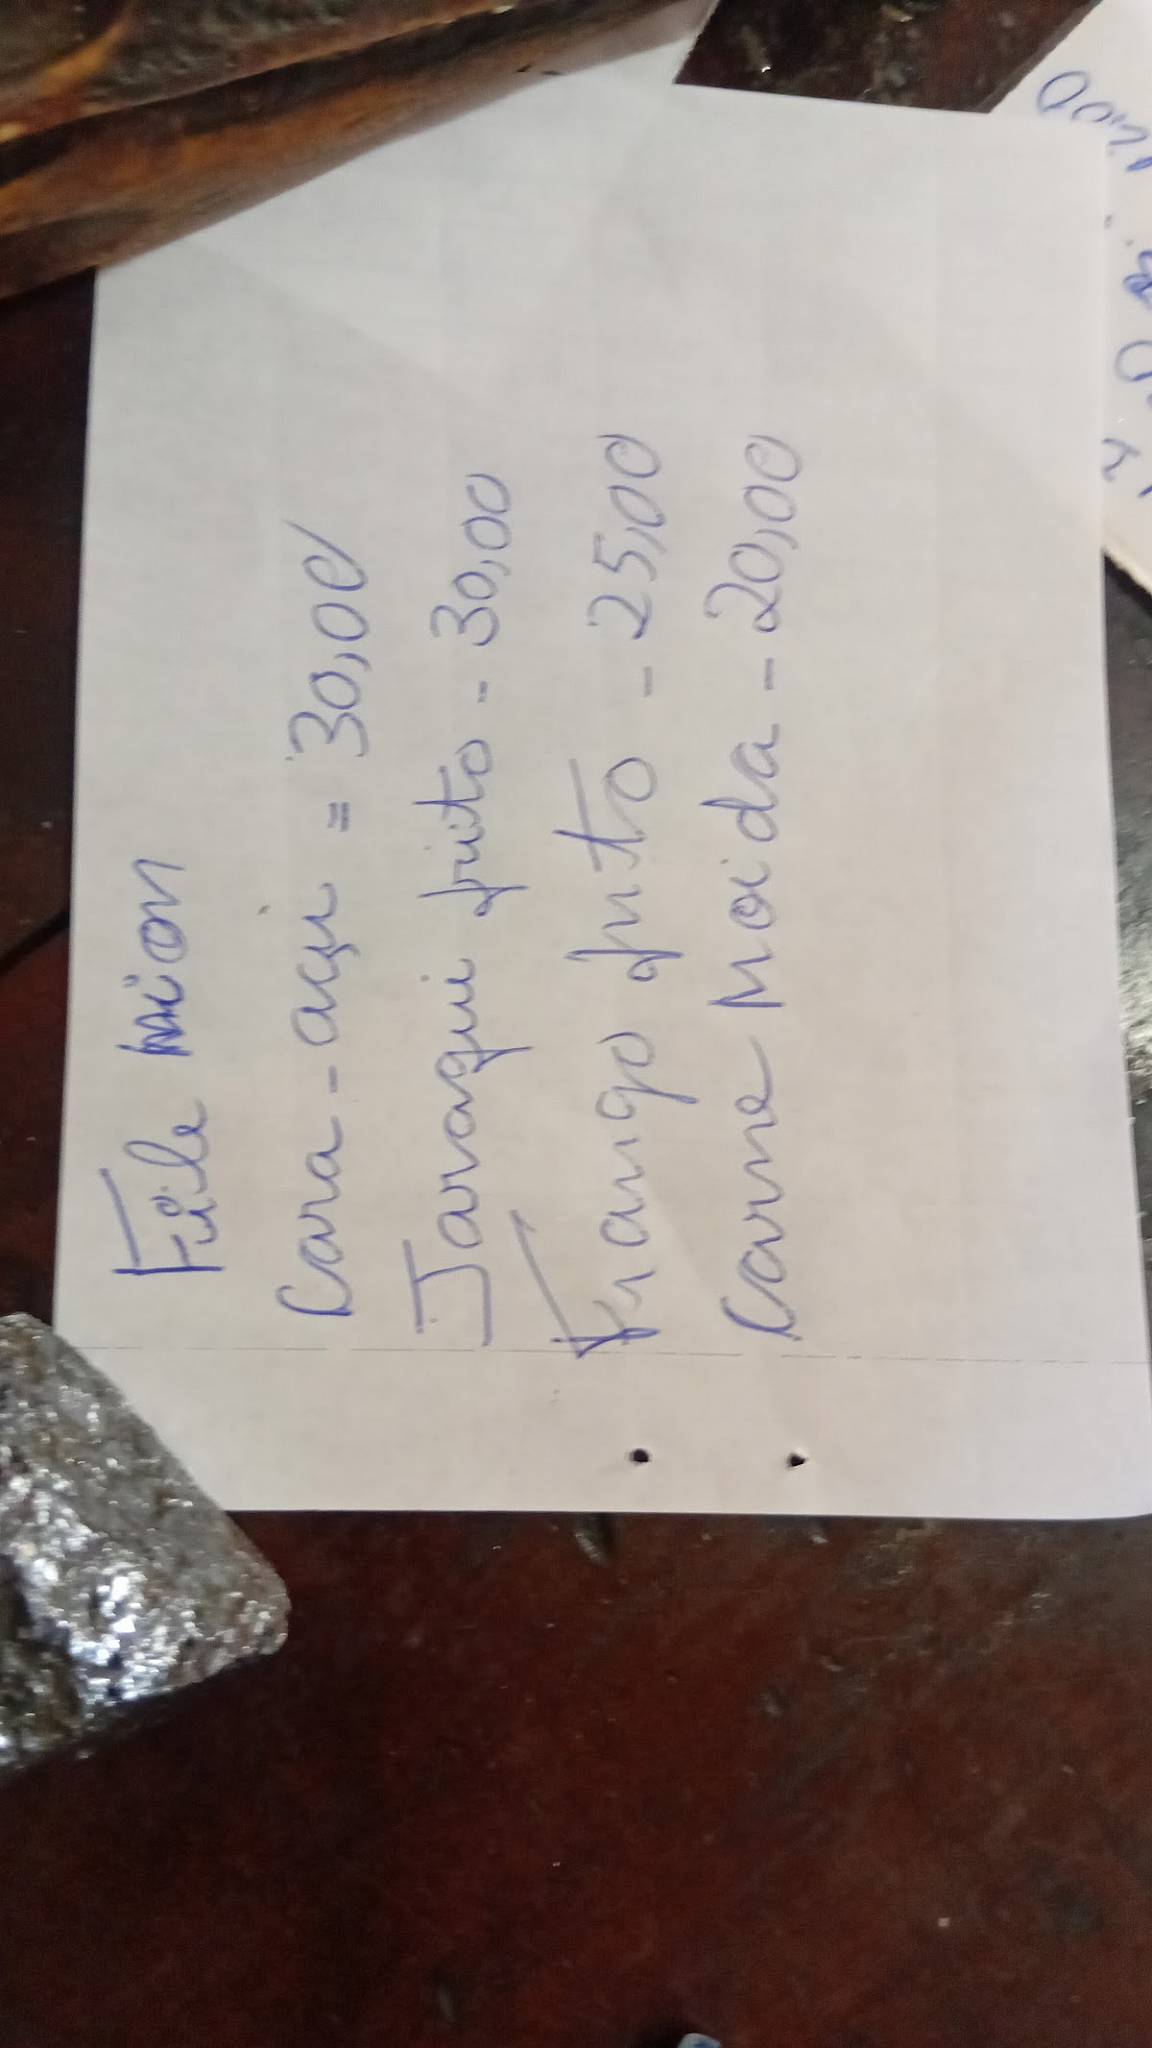 File mion
Cara-açu = 30,00
Jaraqui frito - 30,00
Frango frito - 25,00
Carne Moida - 20,00